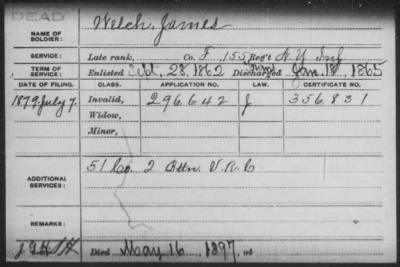 DEAD
NAME OF SOLDIER: Welch, James
SERVICE: Late rank, Co. F, 155 Reg't N.Y. Inf
TERM OF SERVICE: Enlisted Sept. 28, 1862 Discharged Jan. 18, 1865
DATE OF FILING. CLASS. APPLICATION NO. LAW. CERTIFICATE NO.
1879, July 7. Invalid, 296.642 J 356.831
Widow,
Minor,
ADDITIONAL SERVICES: 51 Co. 2 Battn. V.R.C.
REMARKS:
Died May 16, 1897, at